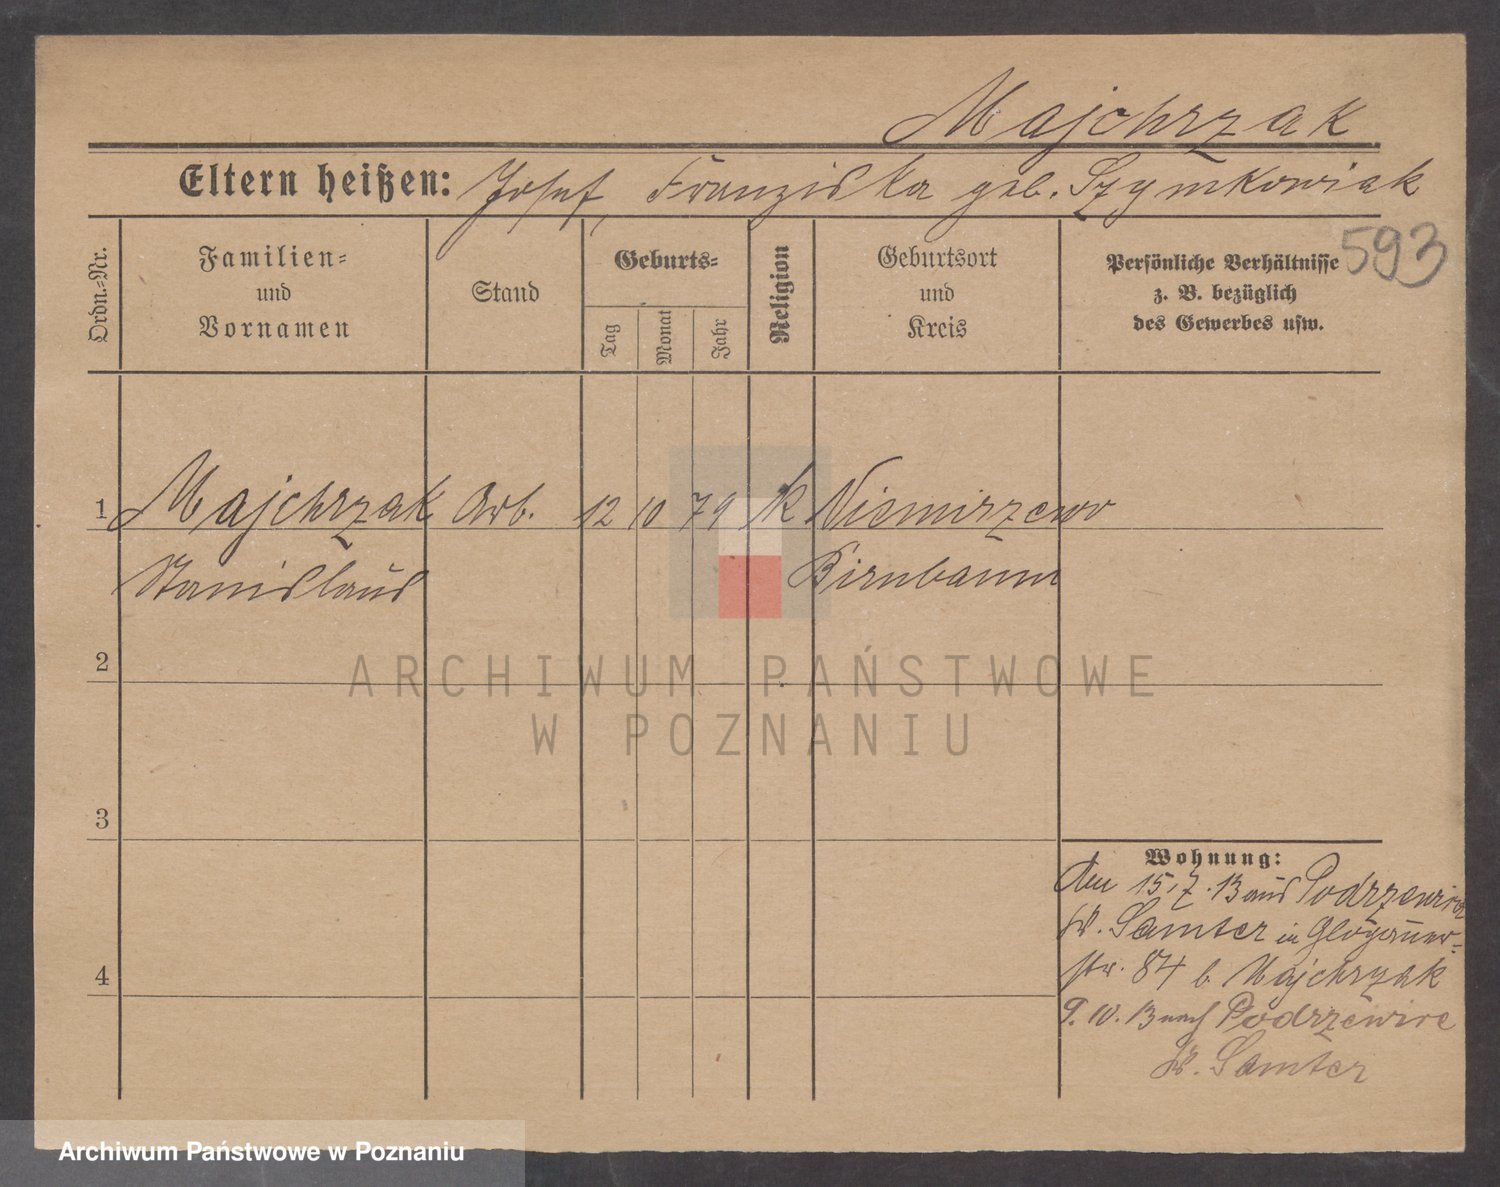 Majchrzak
Eltern heißen: Josef, Franziska geb. Szymkowiak
593
Ordn.-Nr.
Familien-
und
Vornamen
Stand
Geburts-
Tag
Monat
Jahr
Religion
Geburtsort
und
Kreis
Persönliche Verhältnisse
z. B. bezüglich
des Gewerbes usw.
1 Majchrzak Arb. 12 10 79 k Niemirzewo
Stanislaus Birnbaum
2
ARCHIWUM PAŃSTWOWE
W POZNANIU
3
4
Wohnung:
den 15.7.13 aus Podrzewice
Kr. Samter in Glogauer-
str. 84 b Majchrzak
9.10.13 nach Podrzewice
Kr. Samter
Archiwum Państwowe w Poznaniu